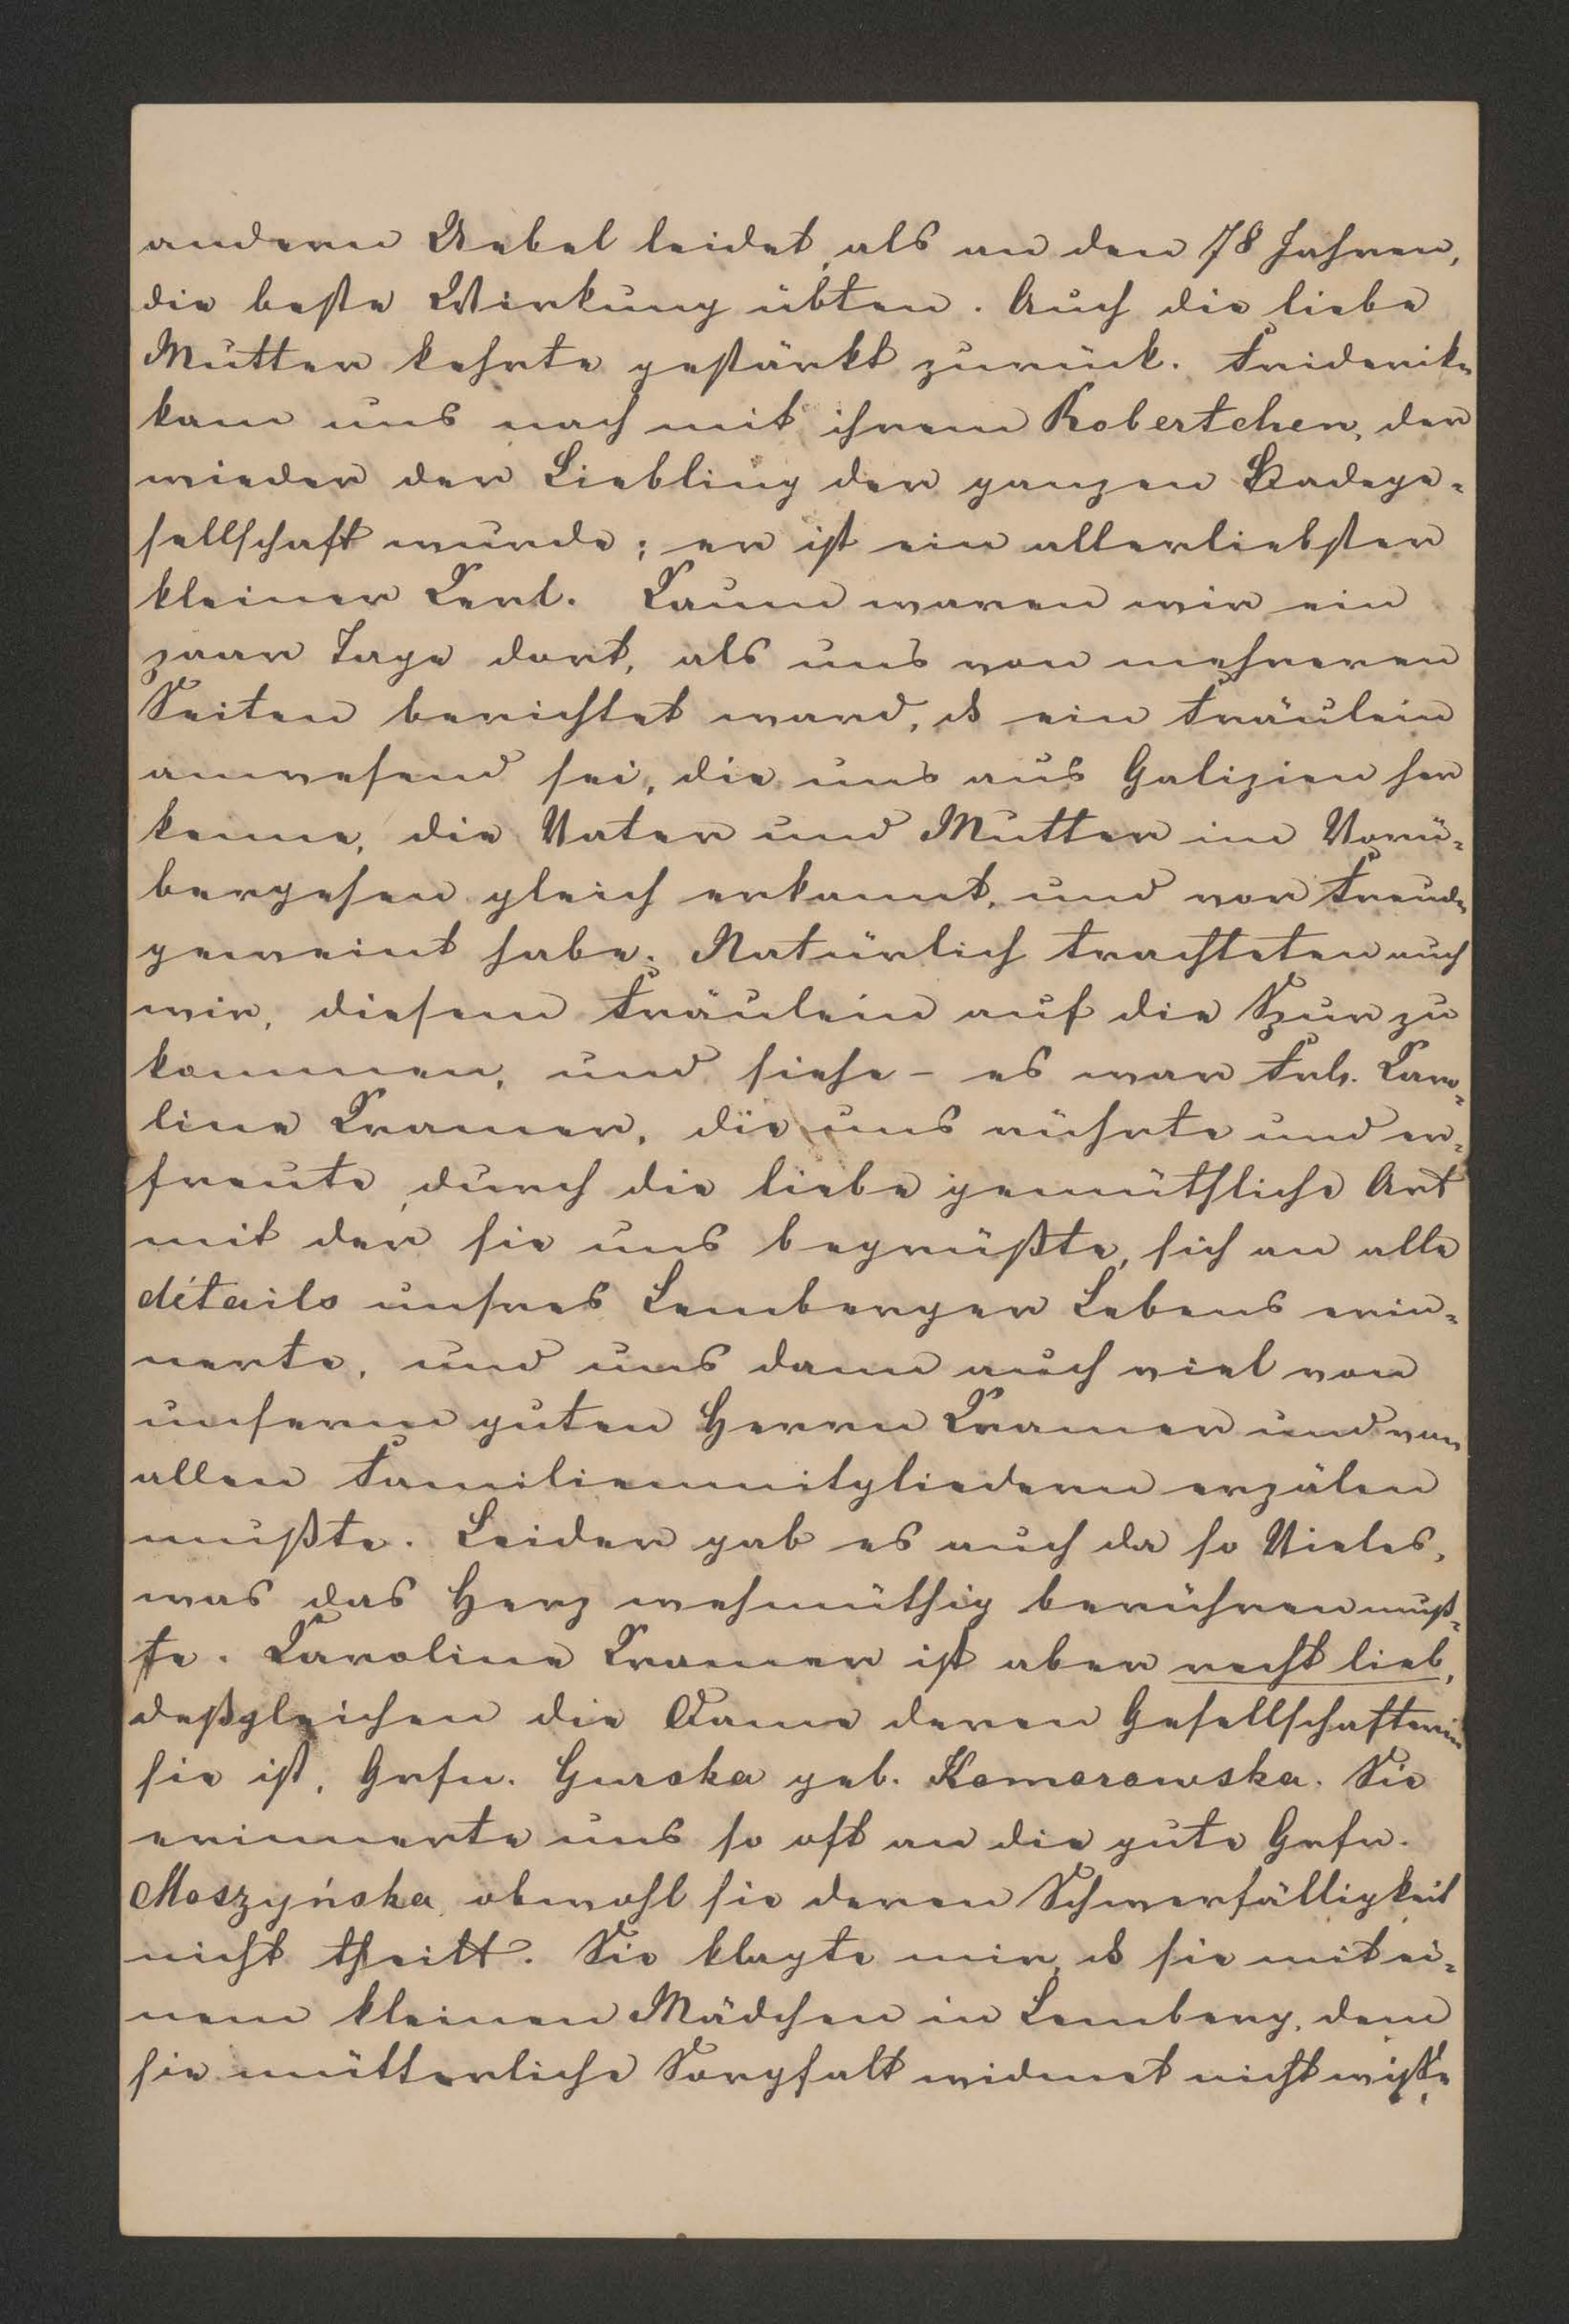 anderen Uebel leidet, als an den 78 Jahren,
die beste Wirkung übten. Auch die liebe
Mutter kehrte gestärkt zurück. Friderike
kam uns nach mit ihrem Robertchen, der
wieder der Liebling der ganzen Badege-
sellschaft wurde; er ist ein allerliebster
kleiner Kerl. Kaum waren wir ein
paar Tage dort, als uns von mehreren
Seiten berichtet ward, ds ein Fräulein
anwesend sei, die uns aus Galizien her
kenne, die Vater und Mutter im Vorü-
bergehen gleich erkannt, und vor Freude
geweint habe. Natürlich trachteten auch
wir, diesem Fräulein auf die Spur zu
kommen, und siehe – es war Frl. Karo-
line Kramer, die uns rührte und er-
freute, durch die liebe gemüthliche Art
mit der sie uns begrüßte, sich an alle
détails unsres Lemberger Lebens erin-
nerte, und uns dann auch viel von
unserem guten Herrn Kramer und von
allen Familienmitgliedern erzälen
mußte. Leider gab es auch da so Vieles,
was das Herz wehmüthig berühren muß-
te. Karoline Kramer ist aber recht lieb,
deßgleichen die Dame deren Gesellschafterin
sie ist, Grfn. Gurska geb. Komorowska. Sie
erinnerte uns so oft an die gute Grfn.
Moszyńska, obwohl sie deren Schwerfälligkeit
nicht theilt. Sie klagte mir, ds sie mit ei-
nem kleinen Mädchen in Lemberg, dem
sie mütterliche Sorgfalt widmet nicht wißte